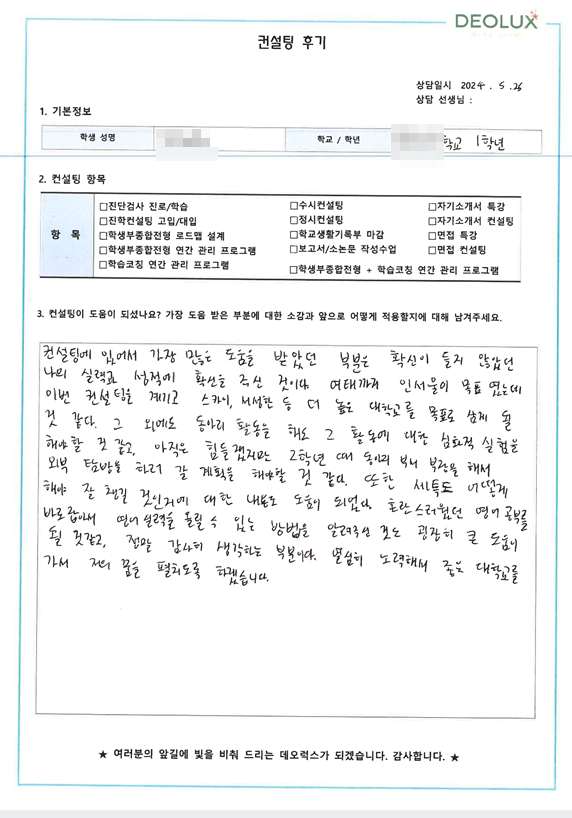 DEOLUX
컨설팅 후기
상담일시 2024. 5. 26
상담 선생님 :
1. 기본정보
학생 성명
학교 / 학년 학교 1학년
2. 컨설팅 항목
항 목
□진단검사 진로/학습 □수시컨설팅 □자기소개서 특강
□진학컨설팅 고입/대입 □정시컨설팅 □자기소개서 컨설팅
□학생부종합전형 로드맵 설계 □학교생활기록부 마감 □면접 특강
□학생부종합전형 연간 관리 프로그램 □보고서/소논문 작성수업 □면접 컨설팅
□학습코칭 연간 관리 프로그램 □학생부종합전형 + 학습코칭 연간 관리 프로그램
3. 컨설팅이 도움이 되셨나요? 가장 도움 받은 부분에 대한 소감과 앞으로 어떻게 적용할지에 대해 남겨주세요.
컨설팅에 있어서 가장 많은 도움을 받았던 부분은 확신이 들지 않았던
나의 실력과 성적에 확신을 주신 것이다. 여태까지 인서울이 목표 였는데
이번 컨설팅을 계기로 스카이, 서성한 등 더 높은 대학교를 목표로 삼게 될
것 같다. 그 외에도 동아리 활동을 해도 그 활동에 대한 심화적 실험을
해야할 것 같고, 아직은 힘들겠지만 2학년 때 동아리 부장을 해서
외부 탐방도 하러 갈 계획을 해야할 것 같다. 또한 세특도 어떻게
해야 잘 챙길 것인지에 대한 내용도 도움이 되었다. 혼란스러웠던 영어 공부를
바로잡아서 영어 실력을 올릴 수 있는 방법을 알려주신 것도 굉장히 큰 도움이
될 것같고, 정말 감사히 생각하는 부분이다. 열심히 노력해서 좋은 대학교를
가서 저의 꿈을 펼치도록 하겠습니다.
★ 여러분의 앞길에 빛을 비춰 드리는 데오럭스가 되겠습니다. 감사합니다. ★